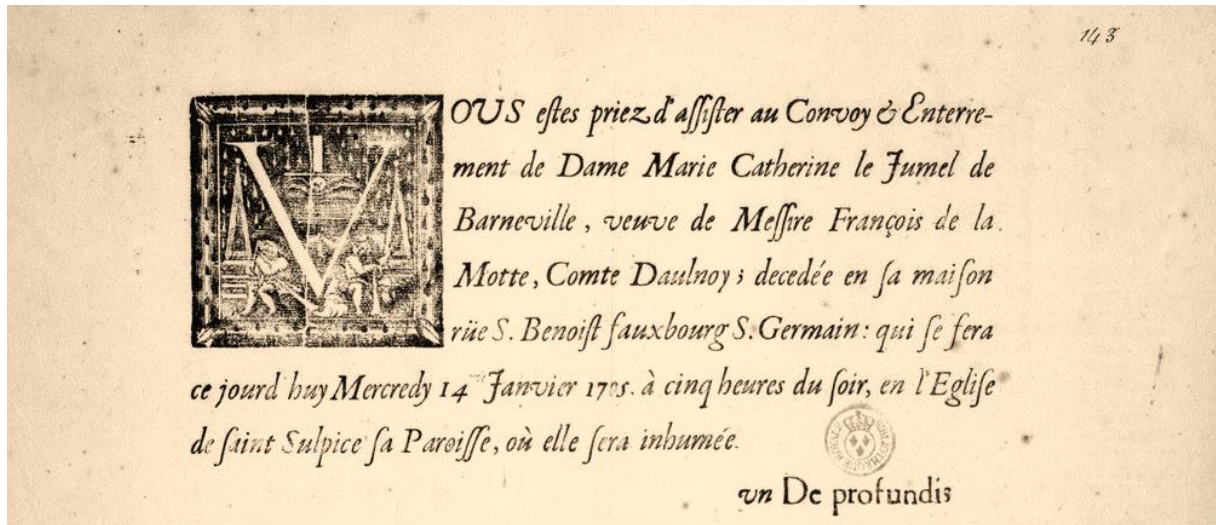 143
VOUS estes priez d'assister au Convoy & Enterre-
ment de Dame Marie Catherine le Jumel de
Barneville, veuve de Messire François de la
Motte, Comte Daulnoy; decedée en sa maison
rüe S. Benoist fauxbourg S. Germain: qui se fera
ce jourd'huy Mercredy 14 Janvier 1705. à cinq heures du soir, en l'Eglise
de saint Sulpice sa Paroisse, où elle sera inhumée.
BIBLIOTHEQUE ROYALE
vn De profundis